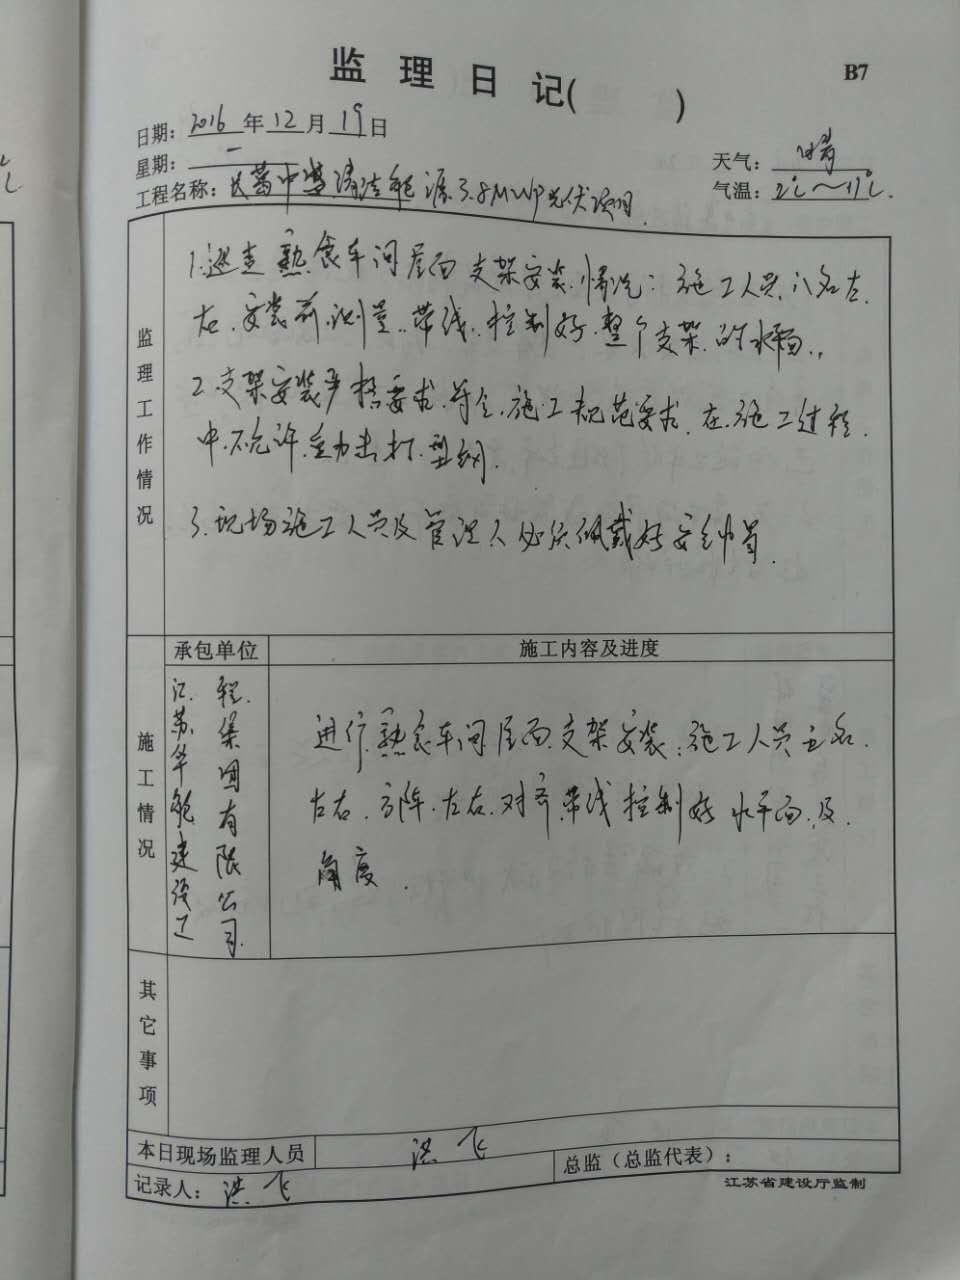 监理日记( )
B7
日期：2016年12月19日
星期：一
天气：晴
工程名称：长葛中 清洁能源3.8MWP光伏项目
气温：2℃～11℃
监理工作情况
1.巡查熟食车间屋面支架安装情况：施工人员八名左
右.安装前.测量.带线.控制好.整个支架.的水平面.
2.支架安装严格要求.符合.施工规范要求.在施工过程
中.不允许.重力击打.型钢.
3.现场施工人员及管理人必须佩戴好安全帽.
承包单位
施工内容及进度
施工情况
江苏华能建设工
程集团有限公司
进行.熟食车间屋面.支架安装：施工人员 名.
左右.方阵.左右.对齐.带线控制好水平面.及.
角度.
其它事项
本日现场监理人员
洪飞
总监（总监代表）：
记录人：洪飞
江苏省建设厅监制